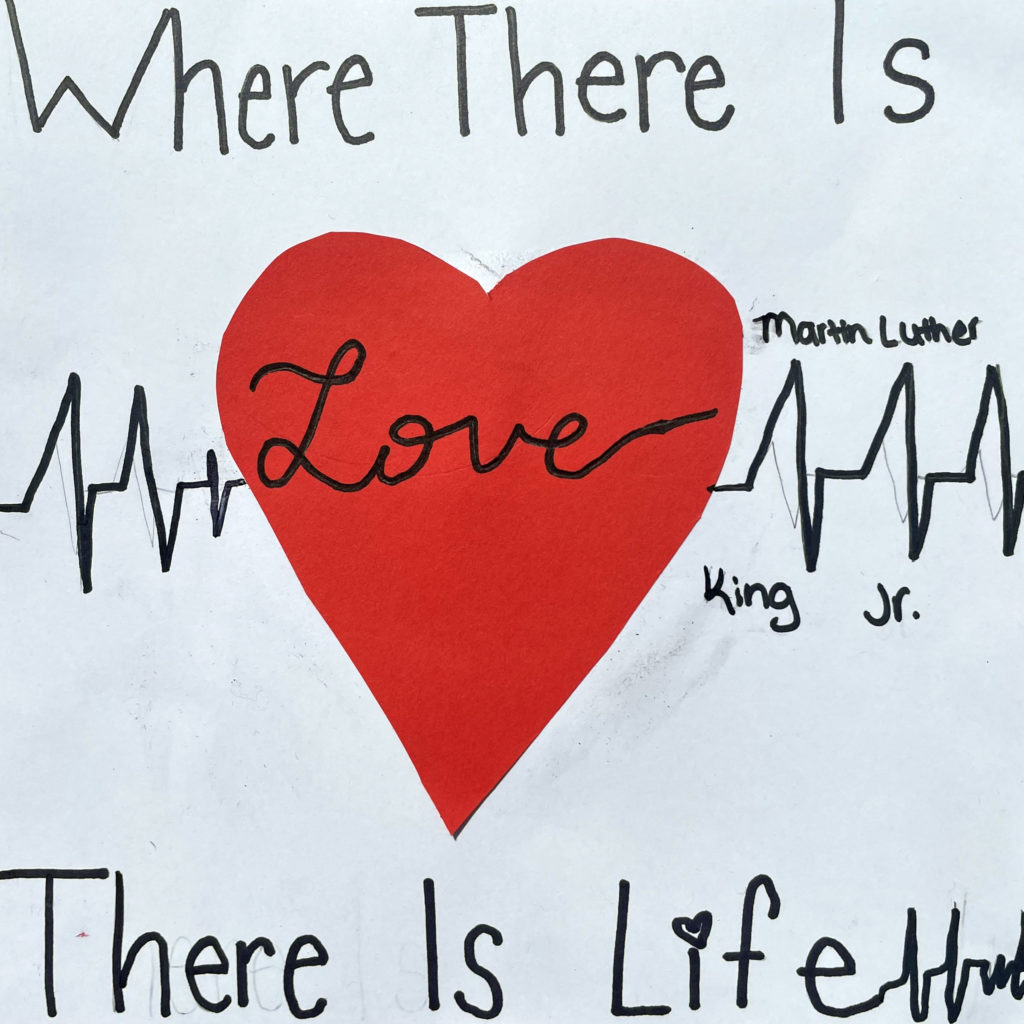 Where There Is
Love
Martin Luther
King Jr.
There Is Life